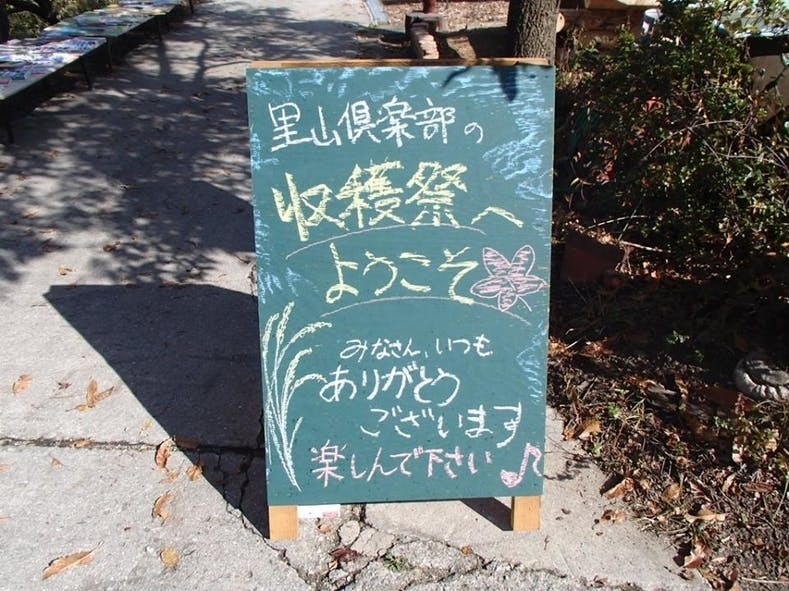 里山倶楽部の
収穫祭へ
ようこそ
みなさん、いつも
ありがとう
ございます
楽しんで下さい♪